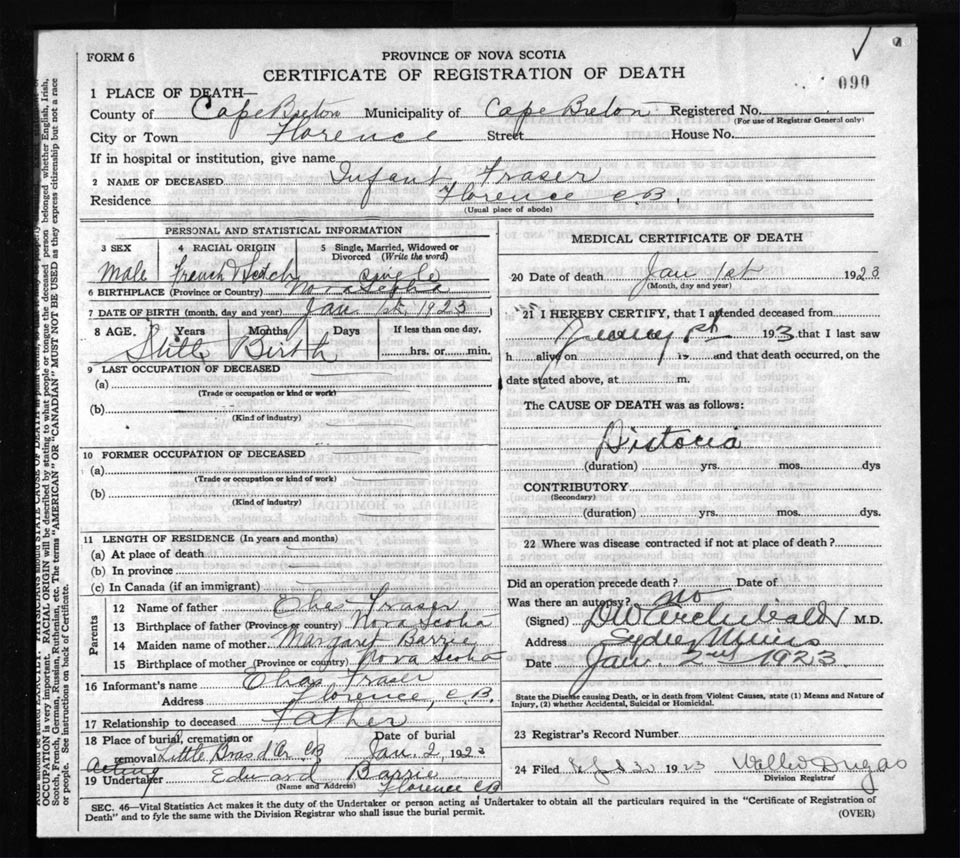 FORM 6
PROVINCE OF NOVA SCOTIA
CERTIFICATE OF REGISTRATION OF DEATH
090
1 PLACE OF DEATH—
County of Cape Breton Municipality of Cape Breton Registered No.
(For use of Registrar General only)
City or Town Florence Street House No.
If in hospital or institution, give name
2 NAME OF DECEASED Infant Fraser
Residence Florence C.B.
(Usual place of abode)
PERSONAL AND STATISTICAL INFORMATION
3 SEX 4 RACIAL ORIGIN 5 Single, Married, Widowed or Divorced (Write the word)
Male French Scotch Single
6 BIRTHPLACE (Province or Country) Nova Scotia
7 DATE OF BIRTH (month, day and year) Jan 1st, 1923
8 AGE. Years Months Days If less than one day,
Still Birth
hrs. or min.
9 LAST OCCUPATION OF DECEASED
(a)
(Trade or occupation or kind or work)
(b)
(Kind of industry)
10 FORMER OCCUPATION OF DECEASED
(a)
(Trade or occupation or kind of work)
(b)
(Kind of industry)
11 LENGTH OF RESIDENCE (In years and months)
(a) At place of death
(b) In province
(c) In Canada (if an immigrant)
Parents
12 Name of father Fraser
13 Birthplace of father (Province or country) Nova Scotia
14 Maiden name of mother Margaret Barrie
15 Birthplace of mother (Province or country) Nova Scotia
16 Informant's name Fraser
Address Florence, C.B.
17 Relationship to deceased Father
18 Place of burial, cremation or removal Little Bras d'Or, CB Date of burial Jan. 2, 1923
Acting
19 Undertaker Edward Barrie
(Name and Address) Florence CB
MEDICAL CERTIFICATE OF DEATH
20 Date of death Jan 1st 1923
(Month, day and year)
21 I HEREBY CERTIFY, that I attended deceased from
193 that I last saw
h alive on 19 and that death occurred, on the
date stated above, at m.
The CAUSE OF DEATH was as follows:
Distocia
(duration) yrs. mos. dys
CONTRIBUTORY
(Secondary)
(duration) yrs. mos. dys.
22 Where was disease contracted if not at place of death?
Did an operation precede death? Date of
Was there an autopsy? no
(Signed) DW Archibald M.D.
Address Sydney Mines
Date Jan 2nd 1923
State the Disease causing Death, or in death from Violent Causes, state (1) Means and Nature of
Injury, (2) whether Accidental, Suicidal or Homicidal.
23 Registrar's Record Number
24 Filed 1923 Dugas
Division Registrar
SEC. 46—Vital Statistics Act makes it the duty of the Undertaker or person acting as Undertaker to obtain all the particulars required in the "Certificate of Registration of
Death" and to fyle the same with the Division Registrar who shall issue the burial permit.
(OVER)
OCCUPATION is very important. RACIAL ORIGIN will be described by stating to what people or tongue the deceased person belonged whether English, Irish,
Scotch, French, German, Russian, Ruthenian, etc. The terms "AMERICAN" OR "CANADIAN" MUST NOT BE USED as they express citizenship but not a race
or people. See instructions on back of Certificate.